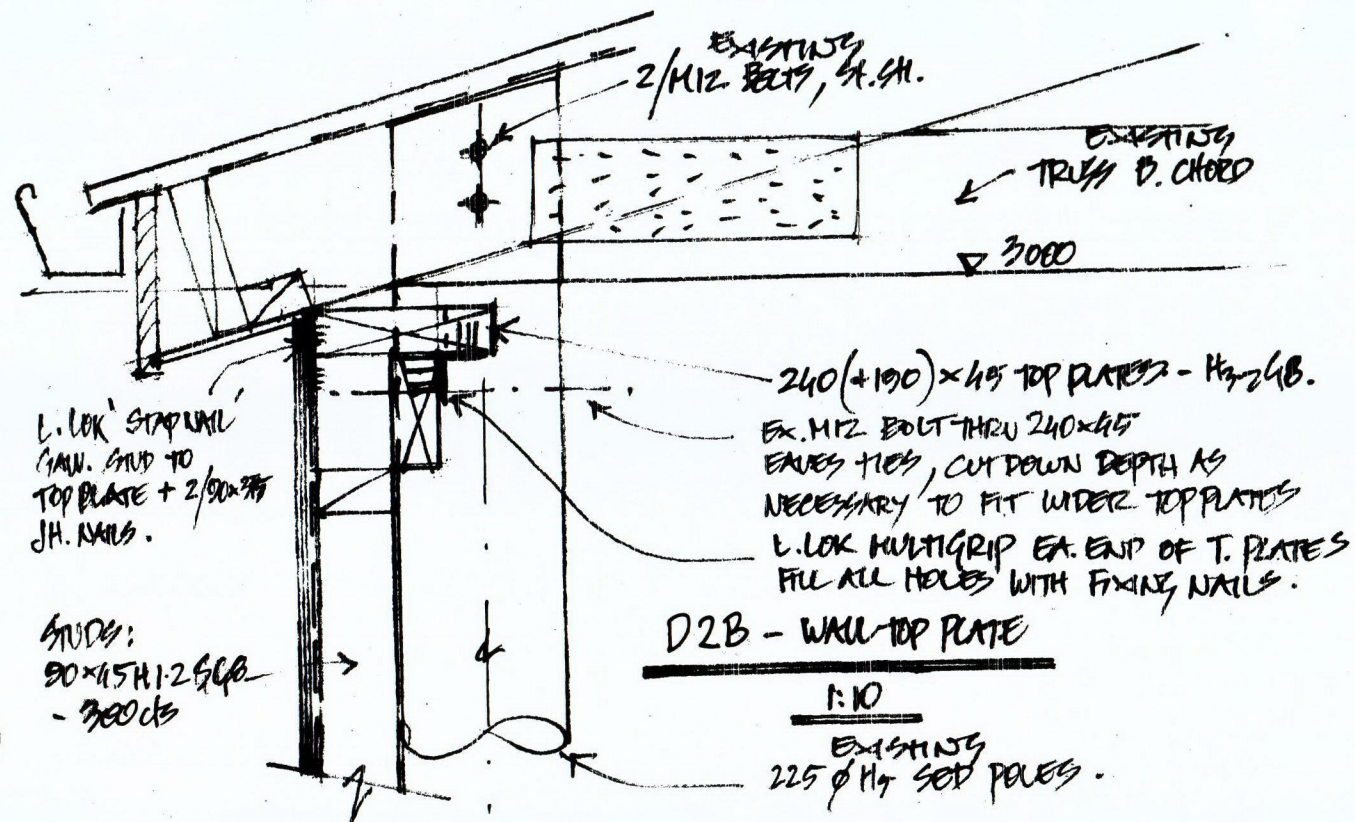 EXISTING
2/M12 BOLTS, ST. ST.
EXISTING
TRUSS B. CHORD
3000
240 (+190) × 45 TOP PLATES - H3-2 GB.
EX. M12 BOLT THRU 240×45
EAVES TIES, CUT DOWN DEPTH AS
NECESSARY TO FIT WIDER TOP PLATES
L.LOK MULTIGRIP EA. END OF T. PLATES
FILL ALL HOLES WITH FIXING NAILS.
L.LOK 'STAP NAIL'
GALV. STUD TO
TOP PLATE + 2/90×
JH. NAILS.
STUDS:
90×45 H1.2 SG8
- 300 cts
D2B - WALL-TOP PLATE
1:10
EXISTING
225 Ø H5 SED POLES.